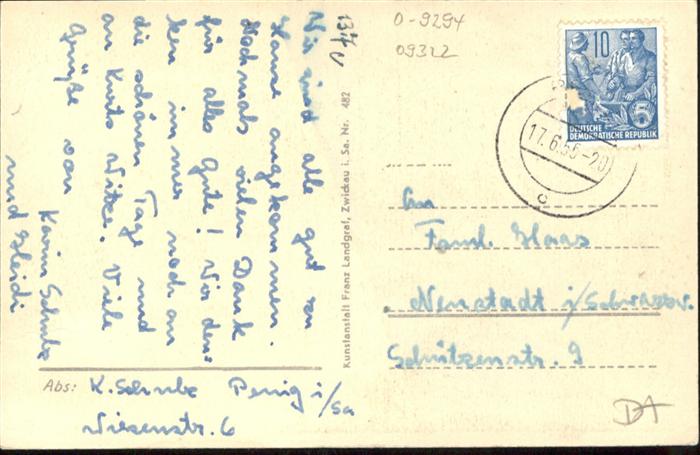 Wir sind alle gut von
Hause angekommen.
Nochmals vielen Dank
für alles Gute! Wir den=
ken immer noch an
die schönen Tage und
an Kurts Witze. Viele
Grüße von
Karin Schulz
und Heidi
Abs: K. Schulz Penig i/Sa
Wiesenstr. 6
Kunstanstalt Franz Landgraf, Zwickau i. Sa. Nr. 482
0-9294
09322
10
5
DEUTSCHE
DEMOKRATISCHE REPUBLIK
17.6.55-20
c
An
Faml. Haas
Neustadt i/Schwarzw.
Schützenstr. 9